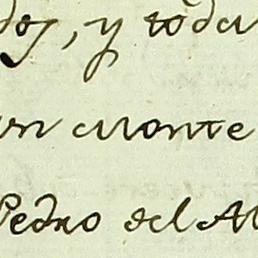 dos, y toda
un monte
Pedro del Al